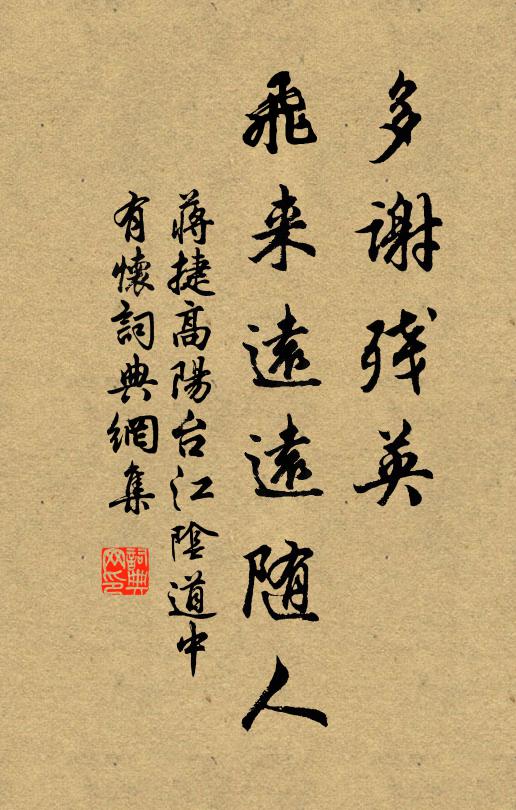 多谢残英
飛来遠遠随人
蒋捷高陽台江陰道中
有懷詞典網集
詞典网印